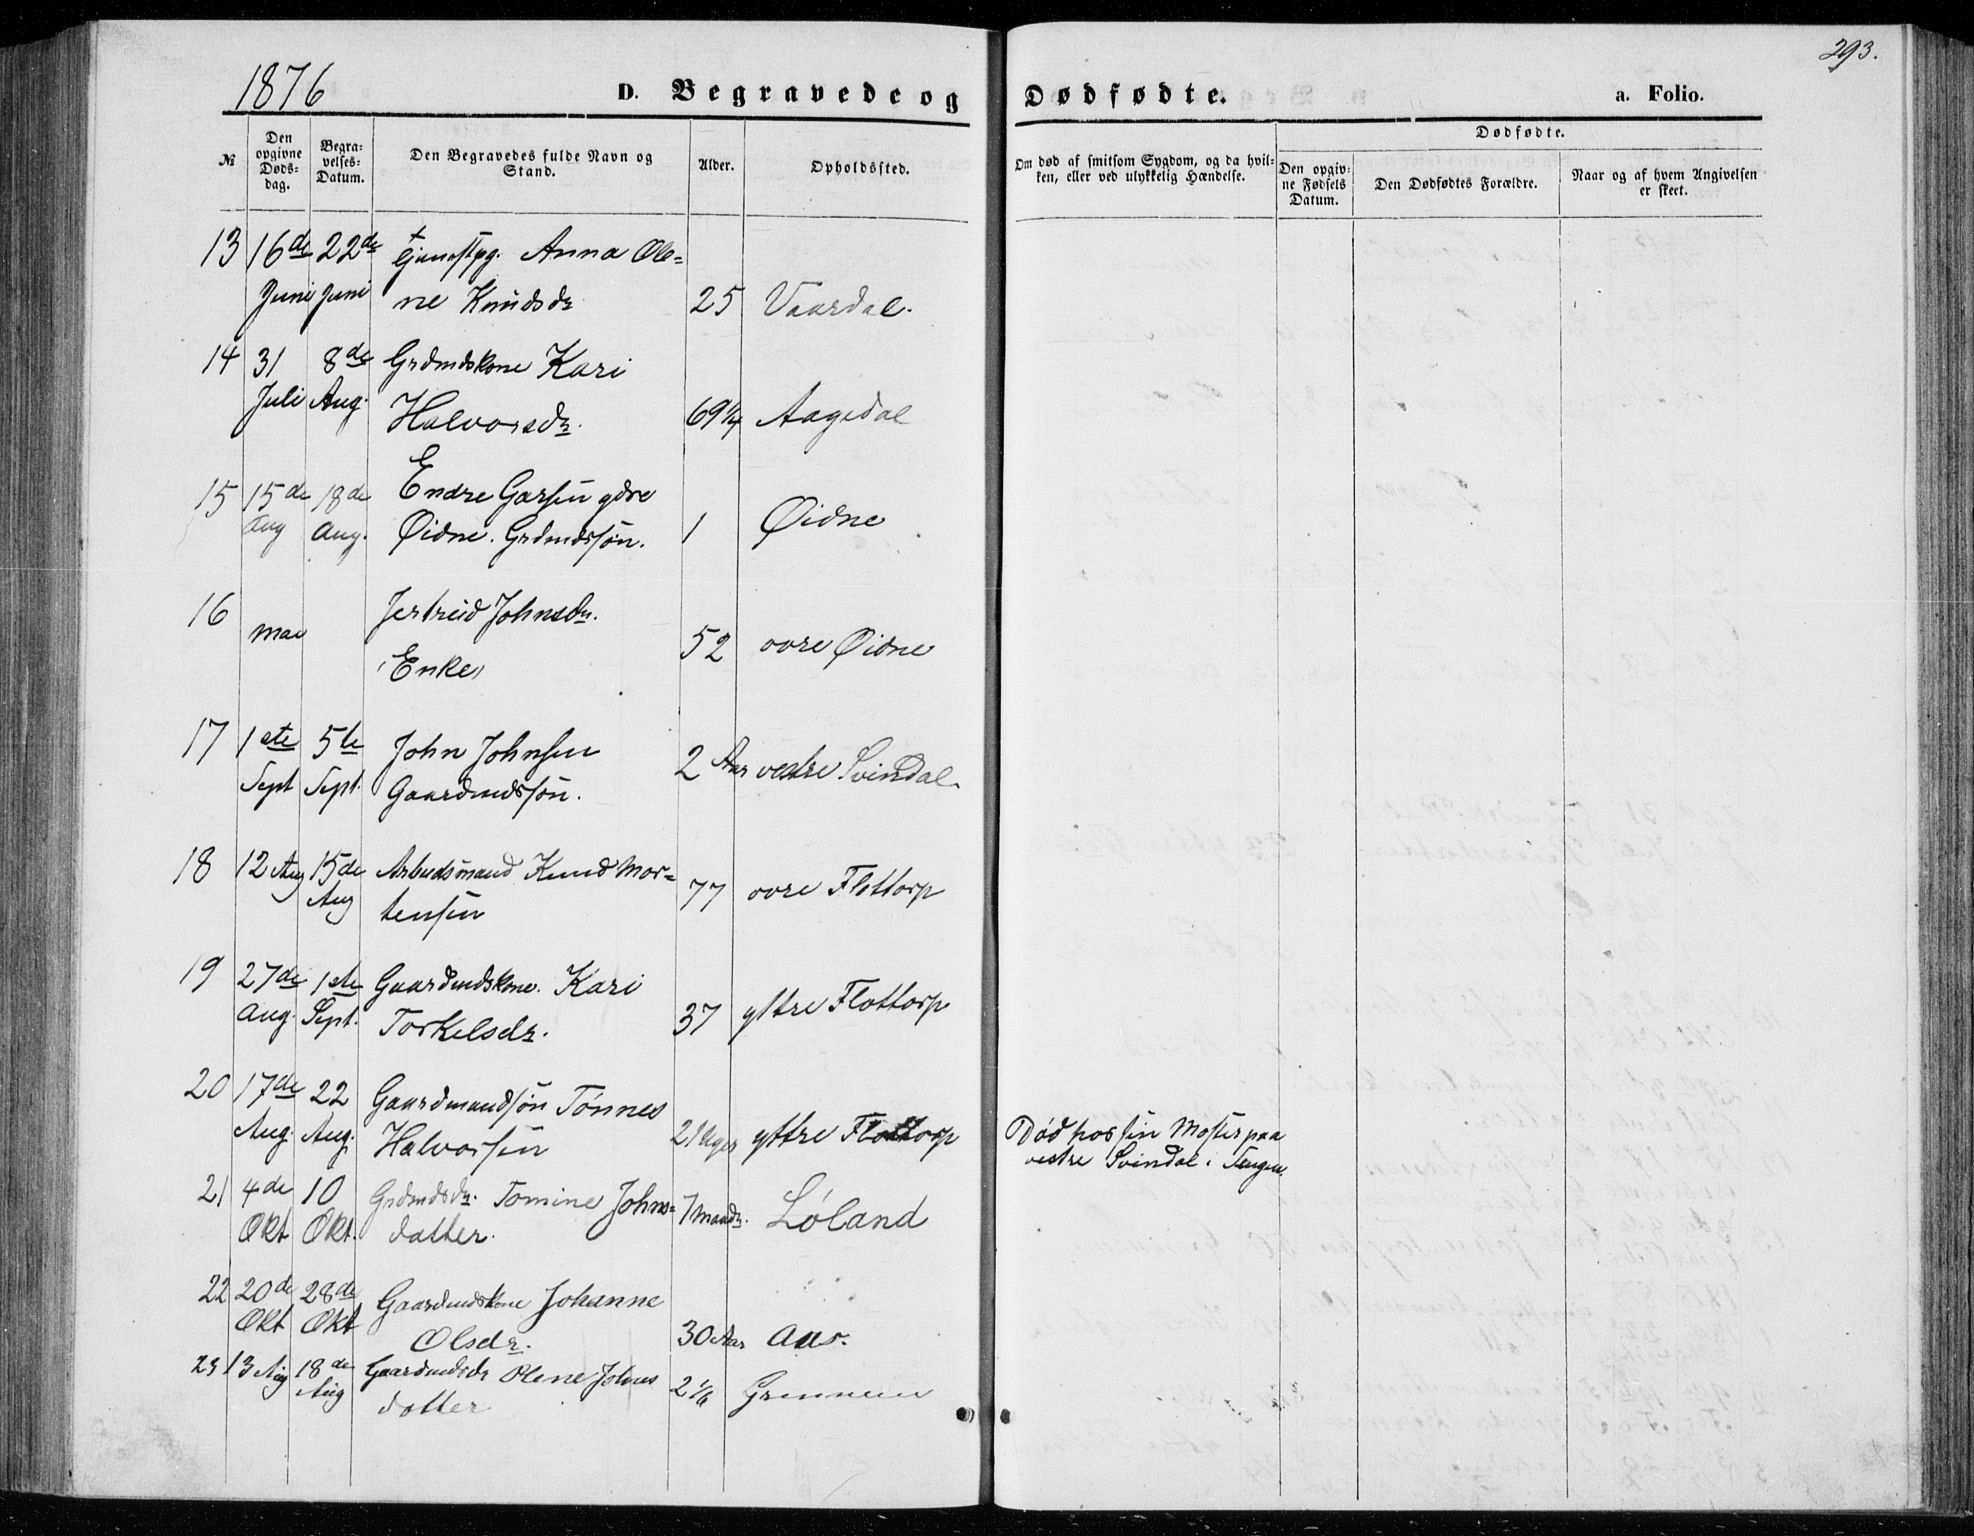 1876
D. Begravede og
Dødfødte.
a. Folio.
293.
№
Den opgivne Døds-dag.
Begra-velses-Datum.
Den Begravedes fulde Navn og Stand.
Alder.
Opholdssted.
Om død af smitsom Sygdom, og da hvil-ken, eller ved ulykkelig Hændelse.
Dødfødte.
Den opgiv-ne Fødsels Datum.
Den Dødfødtes Forældre.
Naar og af hvem Angivelsen er skeet.
13 16de 22de Anna Ole=
Juni Juni ne Knudsdr 25 Vaardal.
14 31 8de Grdmdskone Kari
Juli Aug. Halvorsdr. 69¼ Aagedal
15 15de 18de Endre
Aug Aug. Øidne. Grdmdssøn. 1 Øidne
16 Jertrud Johnsdr.
Mai Enke 52 ovre Øidne
17 1ste 5te John Johnsen
Sept Sept. Gaardmdssøn. 2 Aar vestre Svindal
18 12 Aug 15de Arbeidsmand Knud Mor=
Aug tensen 77 ovre Flottorp
19 27de 1ste Gaardmdskone. Kari
Aug. Sept. Torkelsdr. 37 yttre Flottorp
20 17de 22 Gaardmandssøn Tønnes
Aug. Aug. Halvorsen 2 Uger yttre Flottorp Død hos sin Moster paa
vestre Svindal i
21 4de 10 Grdmdsdr. Tomine Johns=
Okt Okt. datter. 7 Maadr. Løland
22 20de 28de Gaardmdskone Johanne
Okt Okt Olsdr. 30 Aar Aas.
23 13 Aug 18de Gaardmdsdr Olene Johns
Aug datter 2 Grummen